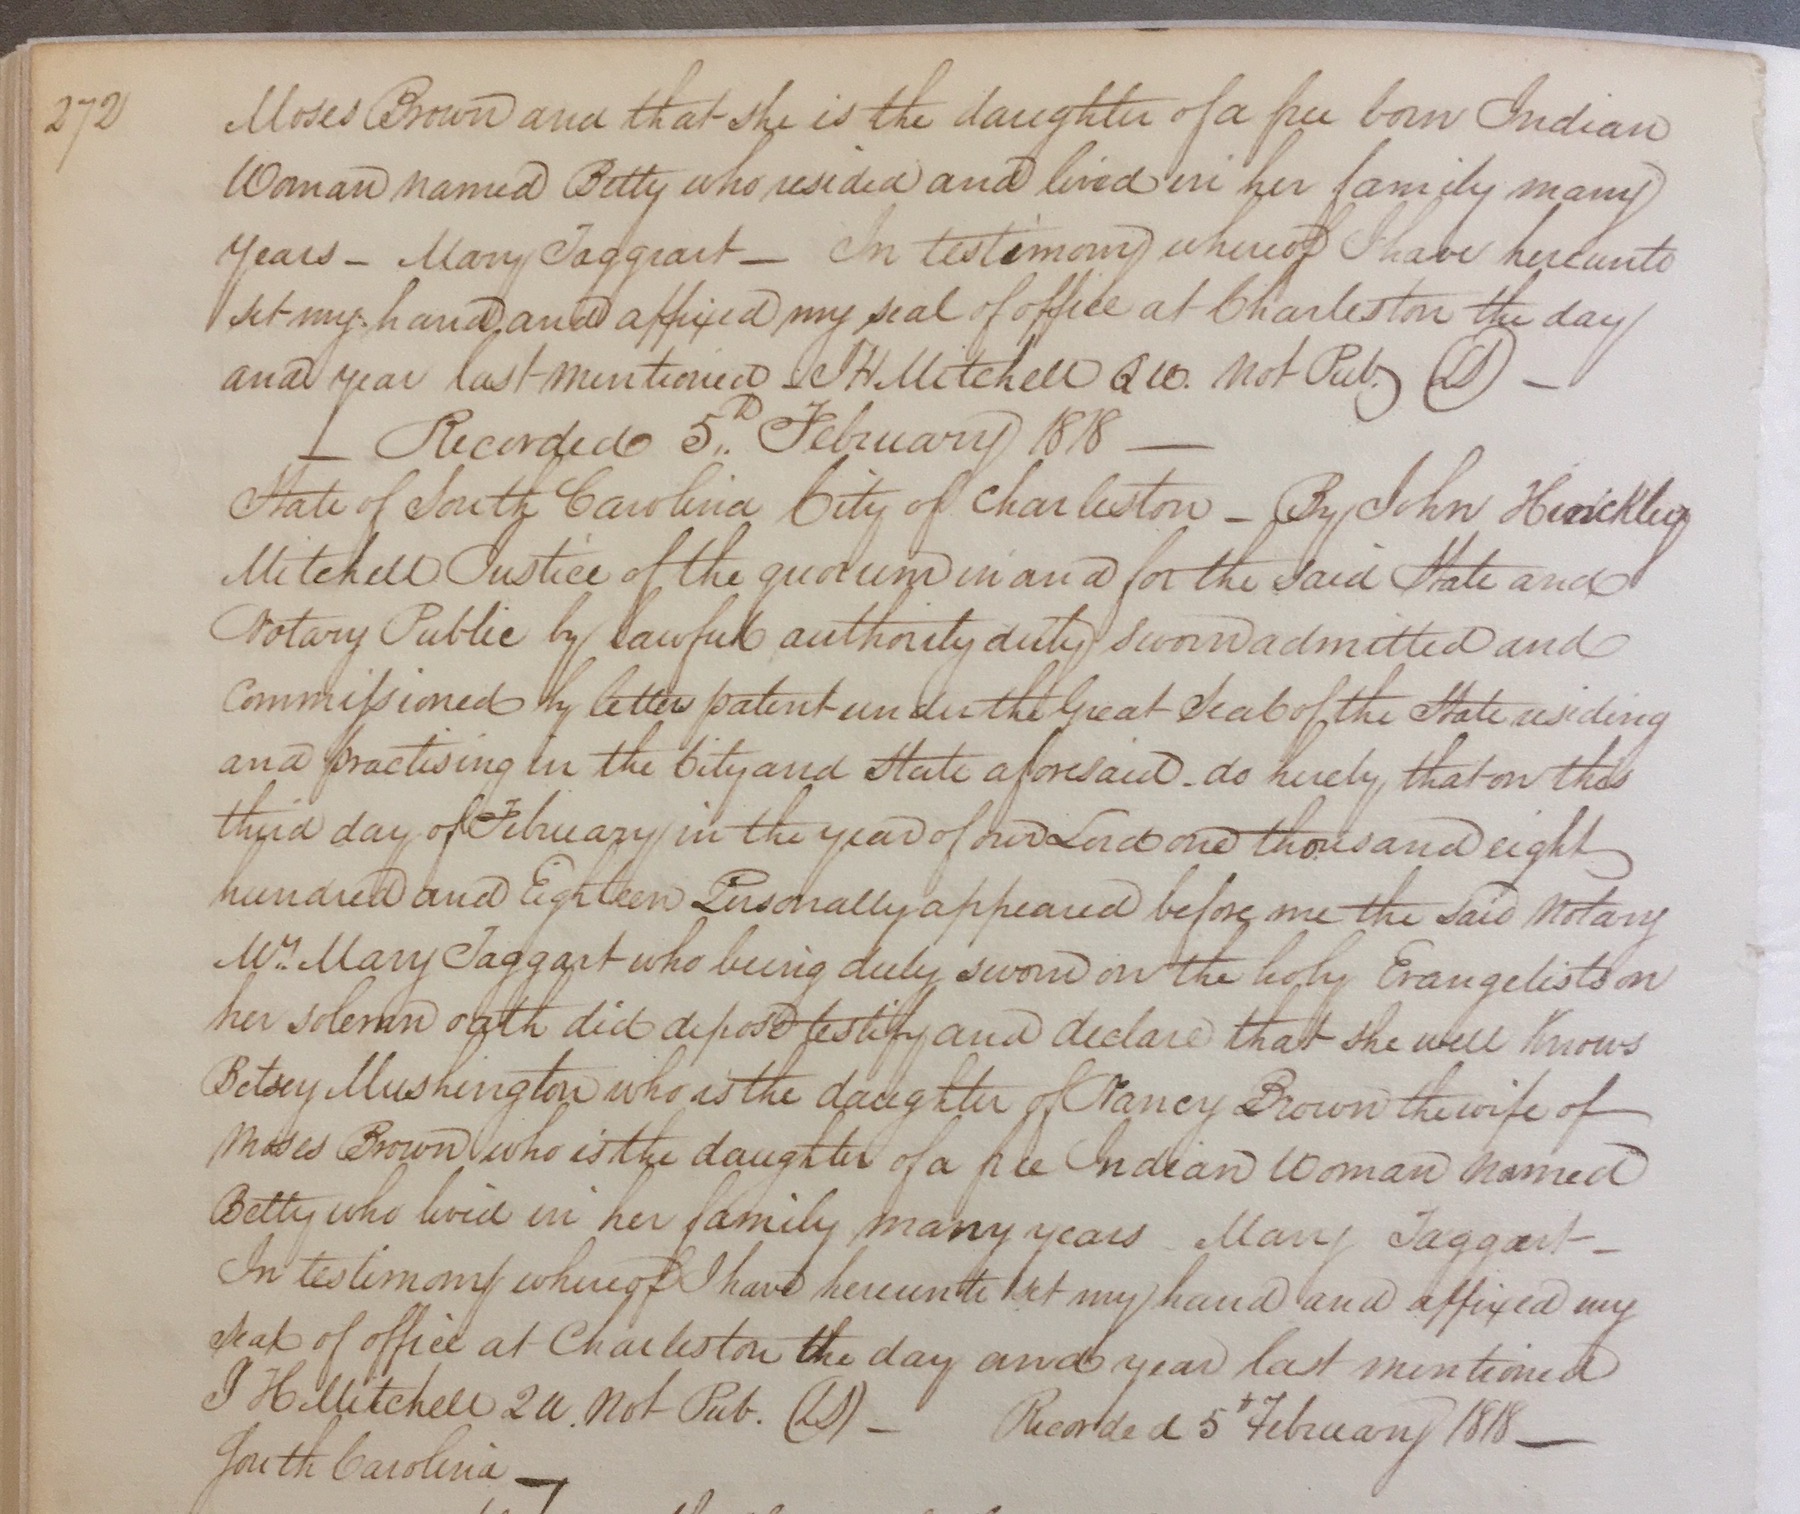 272
Moses Brown and that she is the daughter of a free born Indian
Woman named Betty who resided and lived in her family many
Years – Mary Taggrart – In testimony whereof I have hereunto
set my hand and affixed my seal of office at Charleston the day
and year last mentioned – J H Mitchell Q U. Not Pub. (LS) –
– Recorded 5th February 1818 –
State of South Carolina City of Charleston – By John Hinckley
Mitchell Justice of the quorum in and for the said State and
Notary Public by lawful authority duly sworn admitted and
Commissioned by letters patent under the Great Seal of the State residing
and practising in the City and State aforesaid – do hereby that on this
third day of February in the year of our Lord one thousand eight
hundred and Eighteen Personally appeared before me the said Notary
Mrs. Mary Taggart who being duly sworn on the holy Evangelists on
her solemn oath did depose testify and declare that she well knows
Betsey Mushington who is the daughter of Nancy Brown the wife of
Moses Brown who is the daughter of a free Indian Woman named
Betty who lived in her family many years Mary Taggart –
In testimony whereof I have hereunto set my hand and affixed my
seal of office at Charleston the day and year last mentioned
J H Mitchell 2 U. Not Pub. (LS) – Recorded 5t February 1818 –
South Carolina –